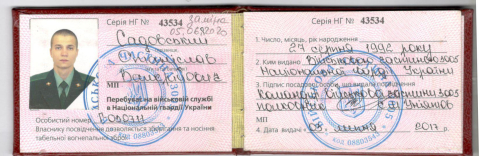 Серія НГ № 43534
заміна
Садовський
Валерійович
МП
Перебуває на військовій службі
в Національній гвардії України
Особистий номер
Власнику посвідчення дозволяється зберігання та носіння
табельної вогнепальної зброї
Серія НГ № 43534
1. Число, місяць, рік народження
27 серпня 1992 року
2. Ким видано Військовою частиною 3005
Національної гвардії України
3. Підпис посадової особи, що видала посвідчення
Командир військової частини 3005
полковник
МП
4. Дата видачі